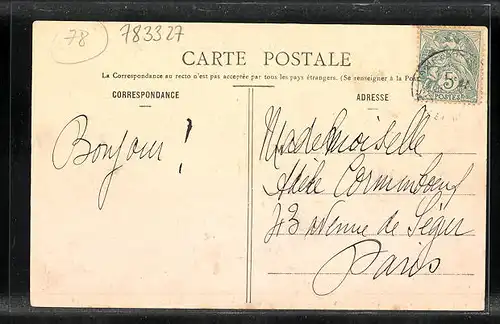 78
783327
CARTE POSTALE
La Correspondance au recto n'est pas acceptée par tous les pays étrangers. (Se renseigner à la Poste
CORRESPONDANCE
ADRESSE
5
POSTES
Bonjour!
Mademoiselle
Adèle Corminboeuf
43 avenue de Ségur
Paris